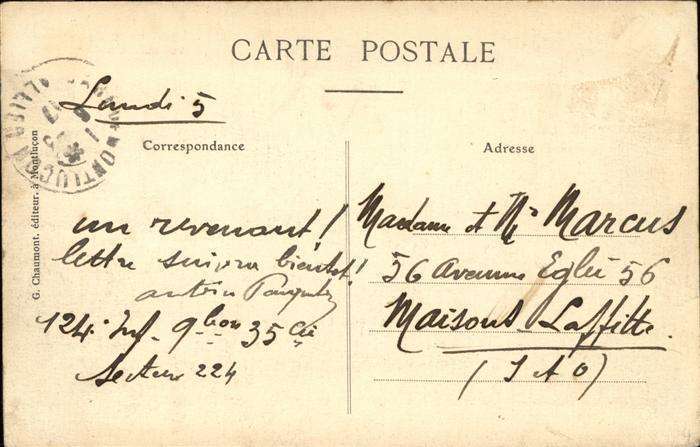 CARTE POSTALE
Lundi 5
Correspondance
Adresse
G. Chaumont, éditeur, à Montluçon
MONTLUÇON
ALLIER
un revenant!
lettre suivra bientôt!
124e Inf. 9e bon 35 Cie
Secteur 224
Madame et Mr Marcus
56 Avenue Eglé 56
Maisons Laffitte
(S et O)